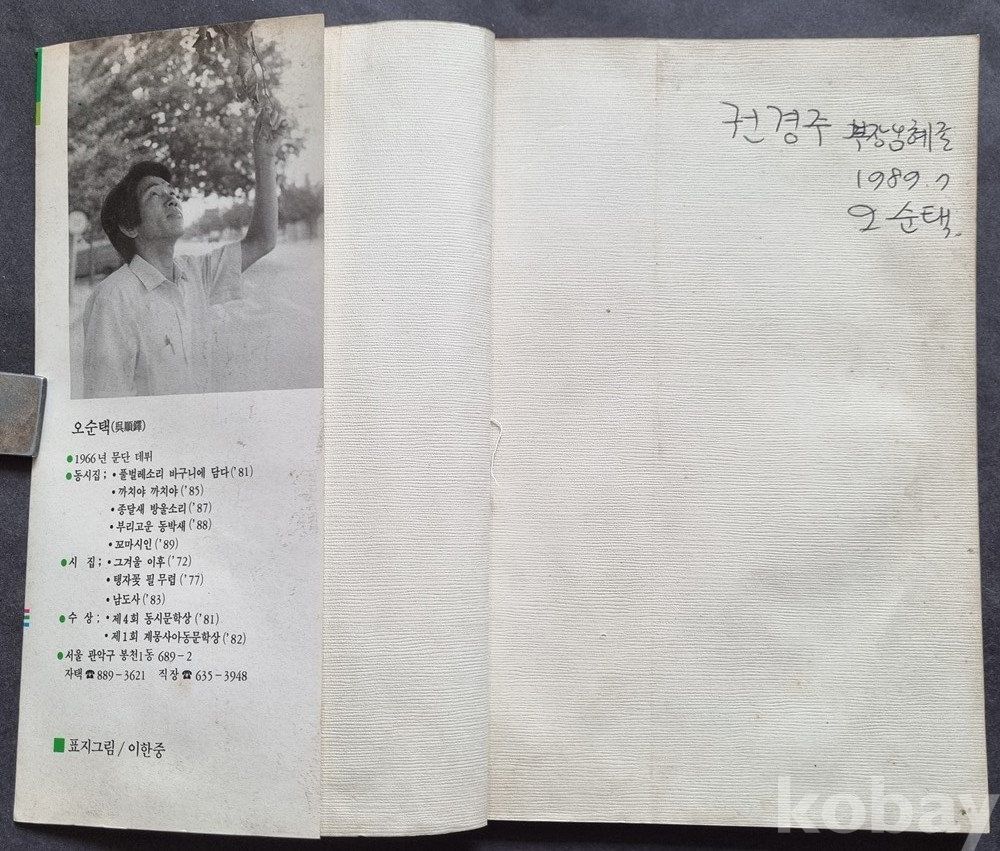 오순택(吳順鐸)
●1966년 문단 데뷔
●동시집; •풀벌레소리 바구니에 담다('81)
•까치야 까치야('85)
•종달새 방울소리('87)
•부리고운 동박새('88)
•꼬마시인('89)
●시 집; •그겨울 이후('72)
•탱자꽃 필 무렵('77)
•남도사('83)
●수 상; •제4회 동시문학상('81)
•제1회 계몽사아동문학상('82)
●서울 관악구 봉천1동 689-2
자택 ☎ 889-3621 직장 ☎ 635-3948
■ 표지그림 / 이한중
권경주
1989.7
오순택.
kobay